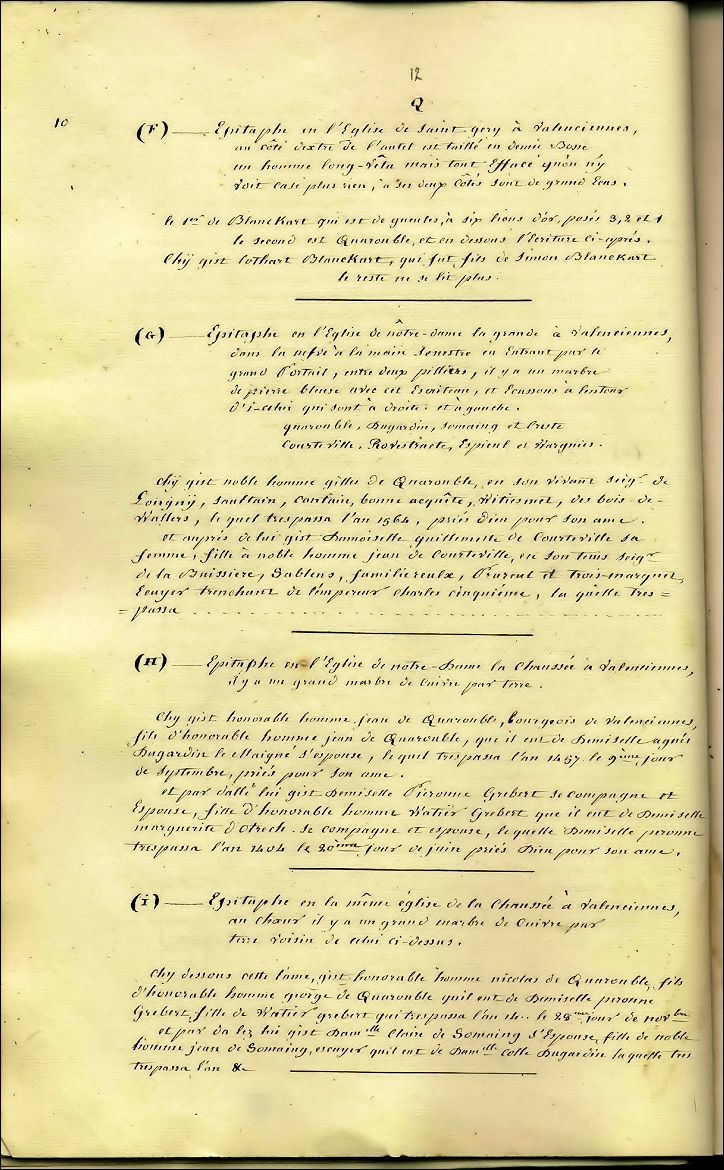 12
Q
10
(F) — Epitaphe en l'Eglise de Saint gery à Valenciennes,
au côté dextre de l'autel est taillé en demie Bosse
un homme long-vêtu mais tout Effacé qu'on n'y
voit casi plus rien, à ses deux côtés sont de grand Ecus.
le 1er de Blanckart qui est de gueules, à six lions d'or, posés 3, 2 et 1
le second est Quarouble, et en dessous l'Ecriture ci-après.
Chÿ gist Lothart Blanckart, qui fut fils de Simon Blanckart
le reste ne se lit plus.
(G) — Epitaphe en l'Eglise de nôtre-dame la grande à Valenciennes,
dans la nefve à la main senestre en Entrant par le
grand Portail, entre deux pilliers, il y a un marbre
de pierre bleuse avec cet Escriteau, et Ecussons à lentour
d'i-celui qui sont à droite. et à gauche.
quarouble, Dugardin, somaing et Creste
Courteville, Rovestraete, Espieul et Wargnies.
Chÿ gist noble homme gilles de Quarouble, en son vivant seigr. de
Loigny, Saultain, Curlain, bonne acquête, Witiesmet, des bois-de-
Wallers, le quel trespassa l'an 1564, priés Dieu pour son ame.
et auprès de lui gist Damoiselle guillemette de Courteville sa
femme, fille à noble homme jean de Courteville, en son tems seigr
de la Buissiere, Sablens, familiereulx, et trois-marquet,
Ecuyer trenchant de l'empereur Charles cinquième, la quelle tres=
=passa
(H) — Epitaphe en l'Eglise de notre-Dame la Chaussée à Valenciennes,
il y a un grand marbre de Cuivre par terre.
Chy gist honorable homme jean de Quarouble, bourgeois de Valenciennes,
fils d'honorable homme jean de Quarouble, que il eut de Demiselle agnès
Dugardin le Maigné s'epouse, le quel trespassa l'an 1457. le 9ème jour
de septembre, priés pour son ame.
et par dallé lui gist Demiselle Pieronne Grebert se compagne et
Espouse, fille d'honorable homme Watier Grebert que il eut de Demiselle
marguerite d'Otrech. se compagne et espouse, le quelle Demiselle peronne
trespassa l'an 1404 le 20ème jour de juin priés Dieu pour son ame.
(I) — Epitaphe en la même église de la Chaussée à Valenciennes,
au Chœur il y a un grand marbre de Cuivre par
terre voisin de celui ci-dessus.
Chy dessous cette lame, gist honorable homme nicolas de Quarouble, fils
d'honorable homme george de Quarouble quil eut de Demiselle pironne
Grebert, fille de Watier grebert qui trespassa l'an 14.. le 28me jour de novbre
et par da lez lui gist Damlle Claire de Somaing s'Espouse, fille de noble
homme jean de Somaing, escuyer quil eut de Damlle Colle Dugardin laquelle tres
trespassa l'an &c